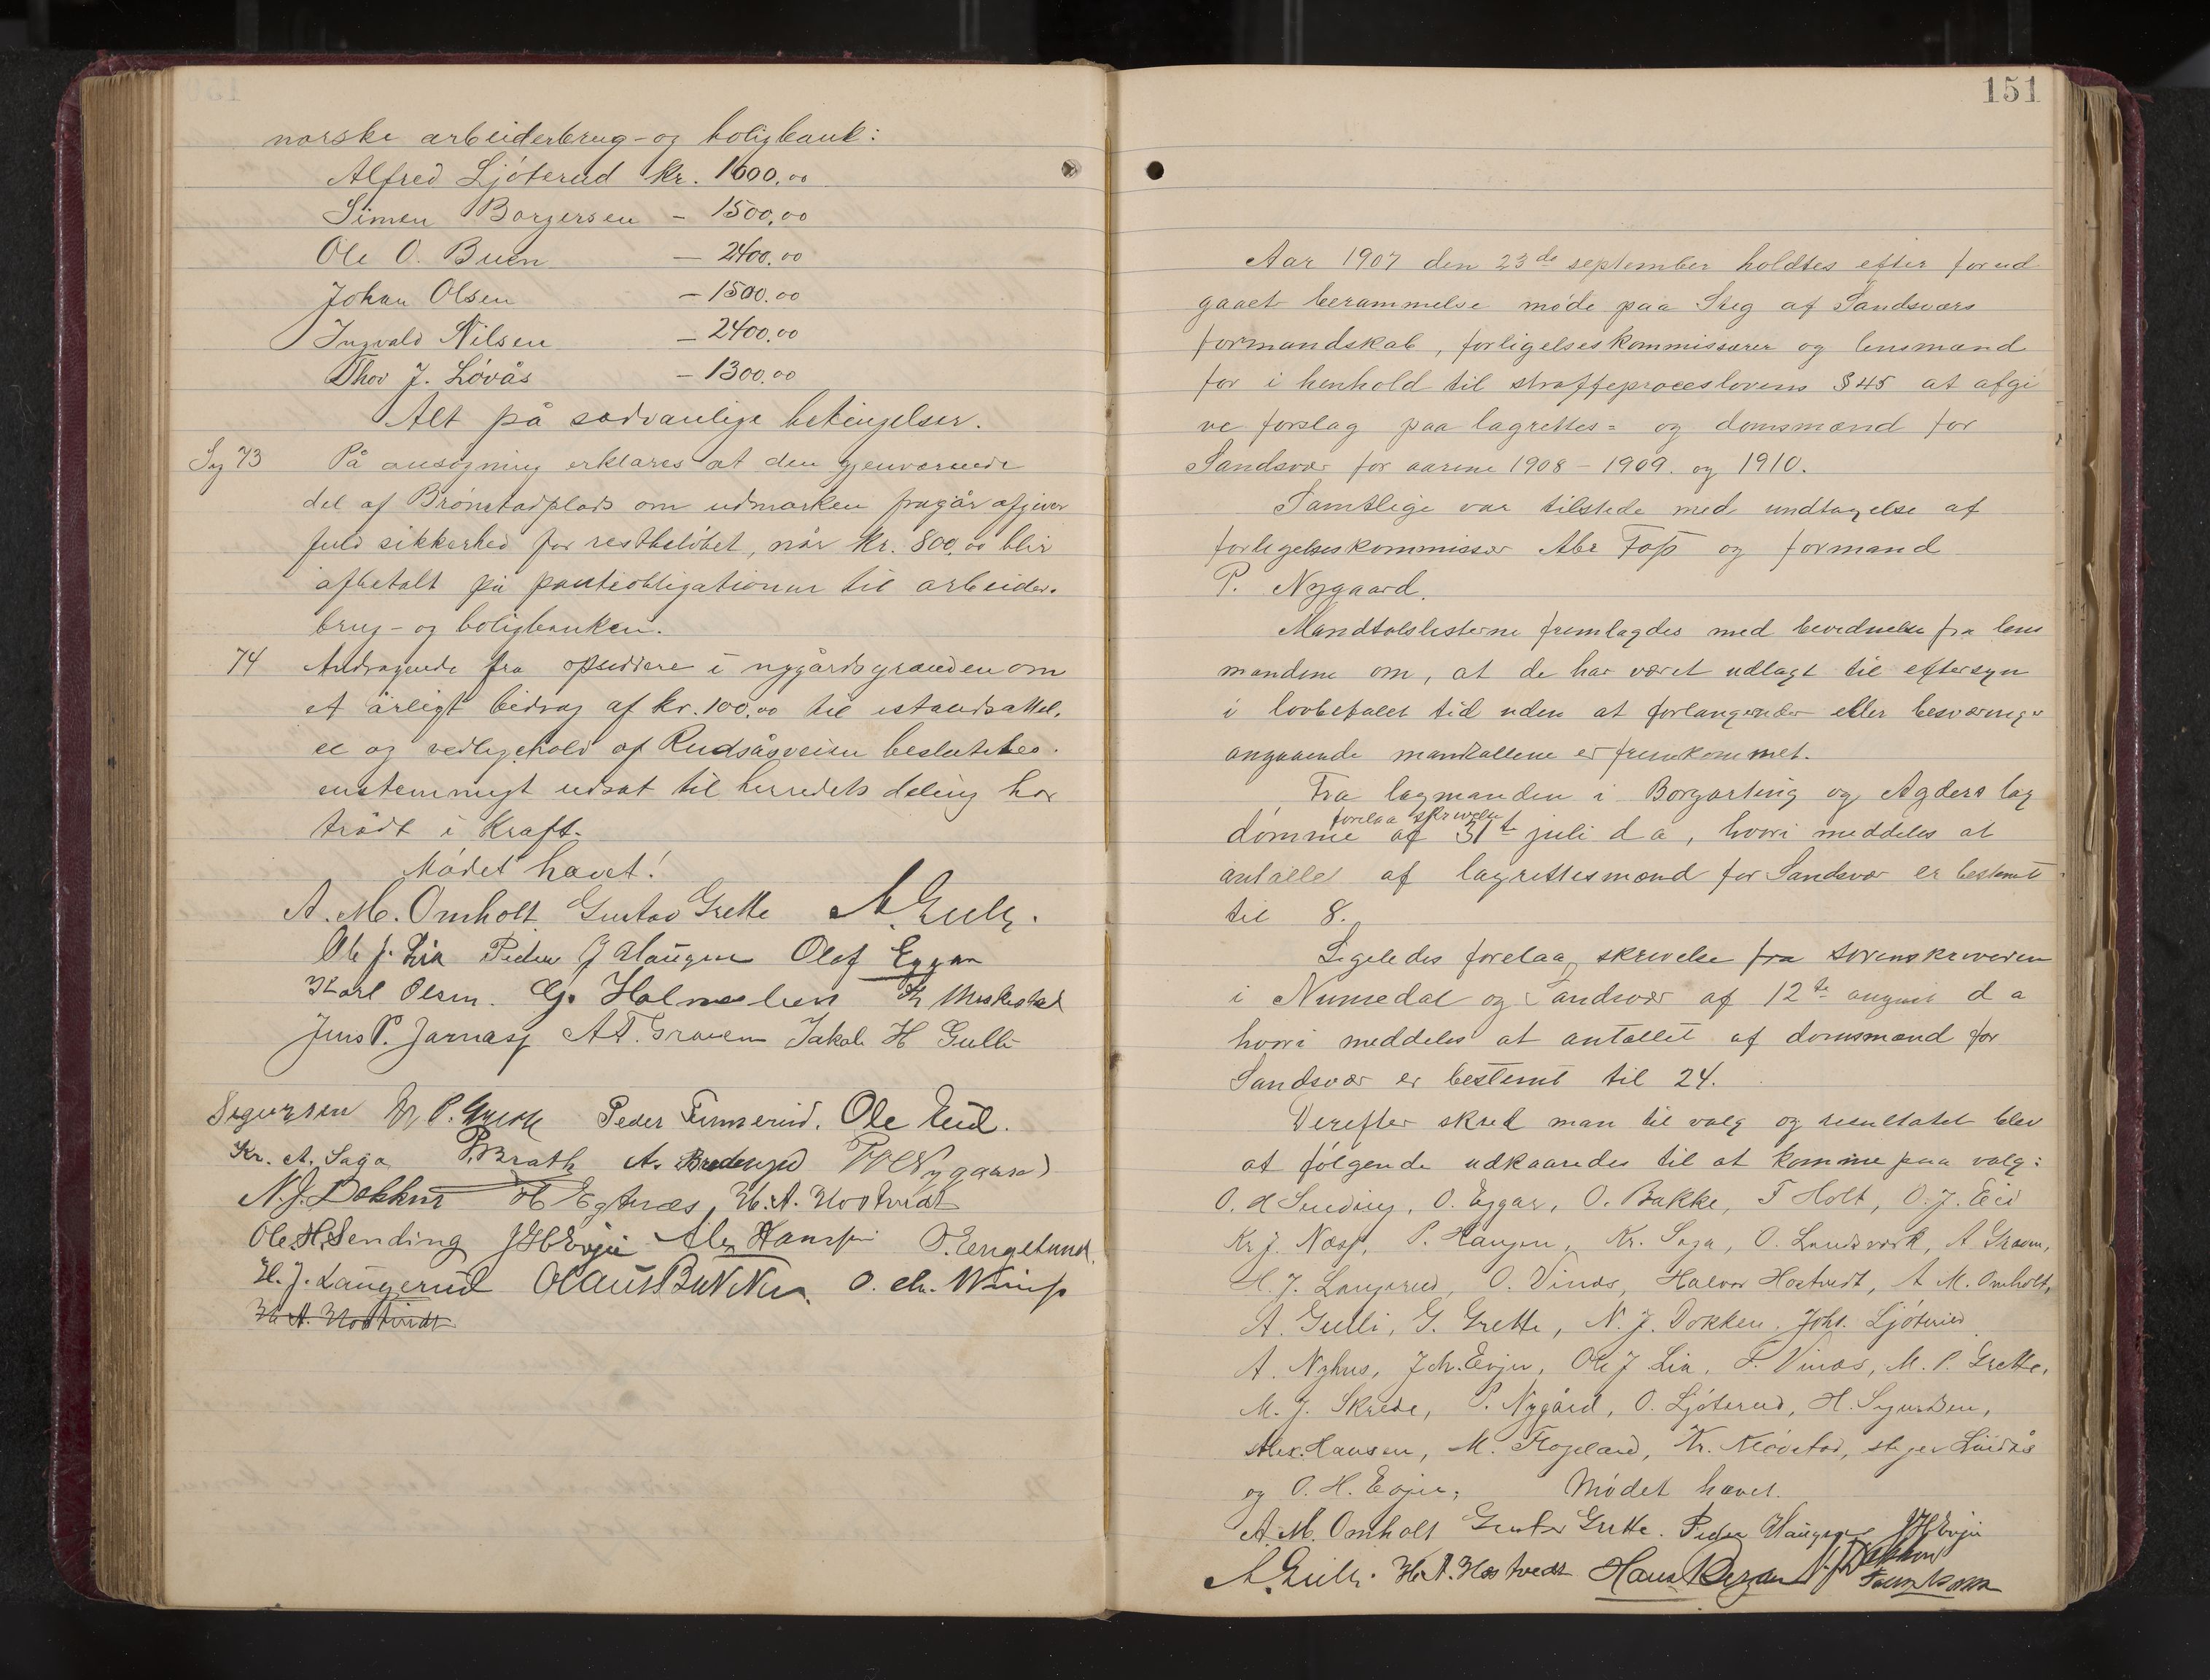 norske arbeiderbrug- og boligbank:
Alfred Ljóterud kr. 1600.00
Simen Borgersen - 1500,00
Ole O. Buen — 2400.00
Johan Olsen - 1500.00
Ingvald Nilsen - 2400,00
Thov J. Lóvås - 1300.00
Alt på sædvanlige betingelser.
Sag 73 På ansøgning erklæres at den gjenværende
del af Brónstadplads om udmarken fragår afgiver
fuld sikkerhed for restbelóbet, når kr. 800,00 blir
afbetalt på panteobligationen til arbeider-
brug- og boligbanken.
74 Andragende fra opsiddere i nygårdsgrænden om
et årligt bidrag af kr. 100,00 til istandsættel-
se og vedligehold af Rudsåsveien besluttedes
enstemmigt udsat til herredets deling har
trådt i kraft.
Módet hævet!
A. M. Omholt Gustav Grette A. Gulli.
Ole J. Lia Peder J Haugen Olaf Eggar
Karl Olsen. G. Holmen
Jens P. Jarnæss A T. Graven Jakob H Gulli
Sigurssen M. P. Grette Peder Ole Eid.
Kr. A. Saga P. Brath A. P Nygaard
N. J. Dokken H. A. Hostvedt
Ole H. Sending J H Evju Alex Hansen O. Englund
H. J. Langerud Olaus Bakken O. Chr. Winness
H. A. Hostvedt
151
Aar 1907 den 23de september holdtes efter forud
gaaet berammelse móde paa Steg af Sandsværs
formandskab, forligelseskommissærer og lensmænd
for i henhold til straffeproceslovens § 45 at afgi
ve forslag paa lagrettes= og domsmænd for
Sandsvær for aarene 1908 - 1909. og 1910.
Samtlige var tilstede med undtagelse af
forligelseskommissær Abr Foss og formand
P. Nygaard.
Mandtalslisterne fremlagdes med bevidnelse fra lens
mændene om, at de har været udlagt til eftersyn
i lovbefalet tid uden at forlangender eller besværinger
angaaende mandtallene er fremkommet.
Fra lagmanden i Borgarting og Agders lag
forelaa skrivelse
dómme af 31te juli d a, hvori meddeles at
antallet af lagrettesmænd for Sandsvær er bestemt
til 8.
Ligeledes forelaa skrivelse fra sorenskriveren
i Numedal og Sandsvær af 12te august d a
hvori meddeles at antallet af domsmænd for
Sandsvær er bestemt til 24.
Derefter skred man til valg og resultatet blev
at fólgende udkaaredes til at komme paa valg:
O. H Sending, O. Eggar, O. Bakke, T Holt, O. J. Eid
Kr J. Næss, P. Haugen, Kr. Saga, O. Landsverk, A Graven,
H. J. Langerud, O. Vinæs, Halvor Hostvedt, A M. Omholt,
A. Gulli, G. Grette, N. J. Dokken, Joh. Ljóterud
A. Nyhus, Joh. Evju, Ole J Lia, F. Vinæs, M. P. Grette,
M. J. Skrede, P. Nygård, O. Ljóterud, H. Sigurdsen,
Alex. Hansen, M. Fløgeland, Kr. Klóvstad, stiger Lindås
og O. H. Evju, Módet hævet.
A. M. Omholt Gustav Grette. Peder Haugen J H Evju
A. Gulli. H. A. Hostvedt Hans N. J Dokken